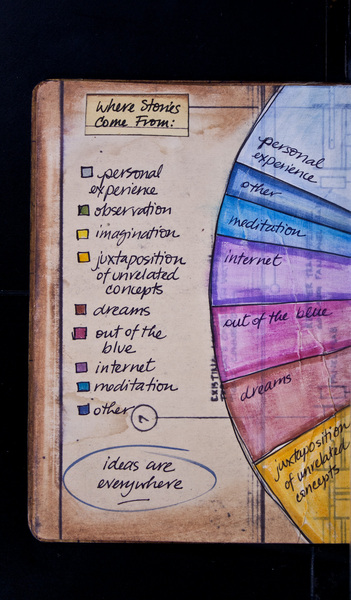 Where Stories
Come From:
personal
experience
observation
imagination
juxtaposition
of unrelated
concepts
dreams
out of the
blue
internet
meditation
other
?
ideas are
everywhere
personal
experience
other
meditation
internet
out of the blue
dreams
juxtaposition
of unrelated
concepts